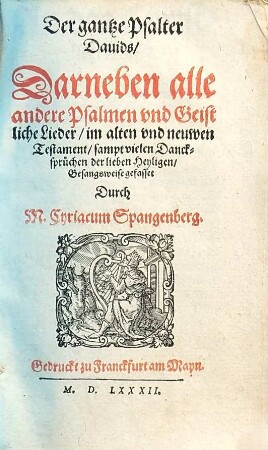 Der gantze Psalter
Dauids/
Darneben alle
andere Psalmen vnd Geist
liche Lieder/ im alten vnd neuwen
Testament/ sampt vielen Danck-
sprüchen der lieben Heyligen/
Gesangsweise gefasset
Durch
M. Cyriacum Spangenberg.
Gedruckt zu Franckfurt am Mayn.
M. D. LXXXII.